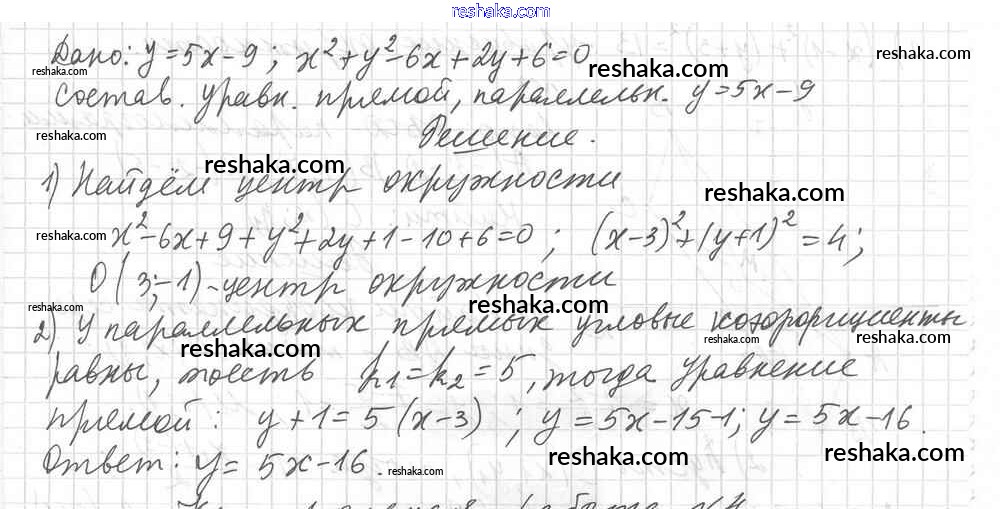 reshaka.com
Дано: y=5x-9; x²+y²-6x+2y+6=0
reshaka.com
reshaka.com
Состав. уравн. прямой, параллельн. y=5x-9
reshaka.com
Решение.
reshaka.com
1) Найдём центр окружности
reshaka.com
reshaka.com
x²-6x+9+y²+2y+1-10+6=0; (x-3)²+(y+1)²=4;
O(3;-1)-центр окружности
reshaka.com
reshaka.com
2) У параллельных прямых угловые коэффициенты
reshaka.com
reshaka.com
равны, тоесть k₁=k₂=5, тогда уравнение
прямой: y+1=5(x-3); y=5x-15-1; y=5x-16.
Ответ: y=5x-16.
reshaka.com
reshaka.com
reshaka.com